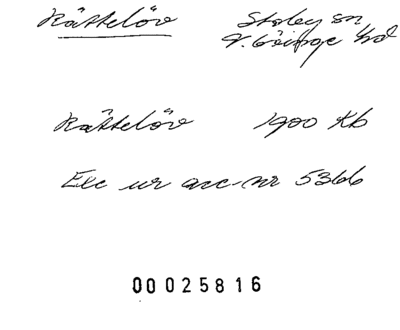 Kättelöv Stoby sn
V. Göinge hd
Kättelöv 1900 Kb
Exc ur acc-nr 5366
00025816